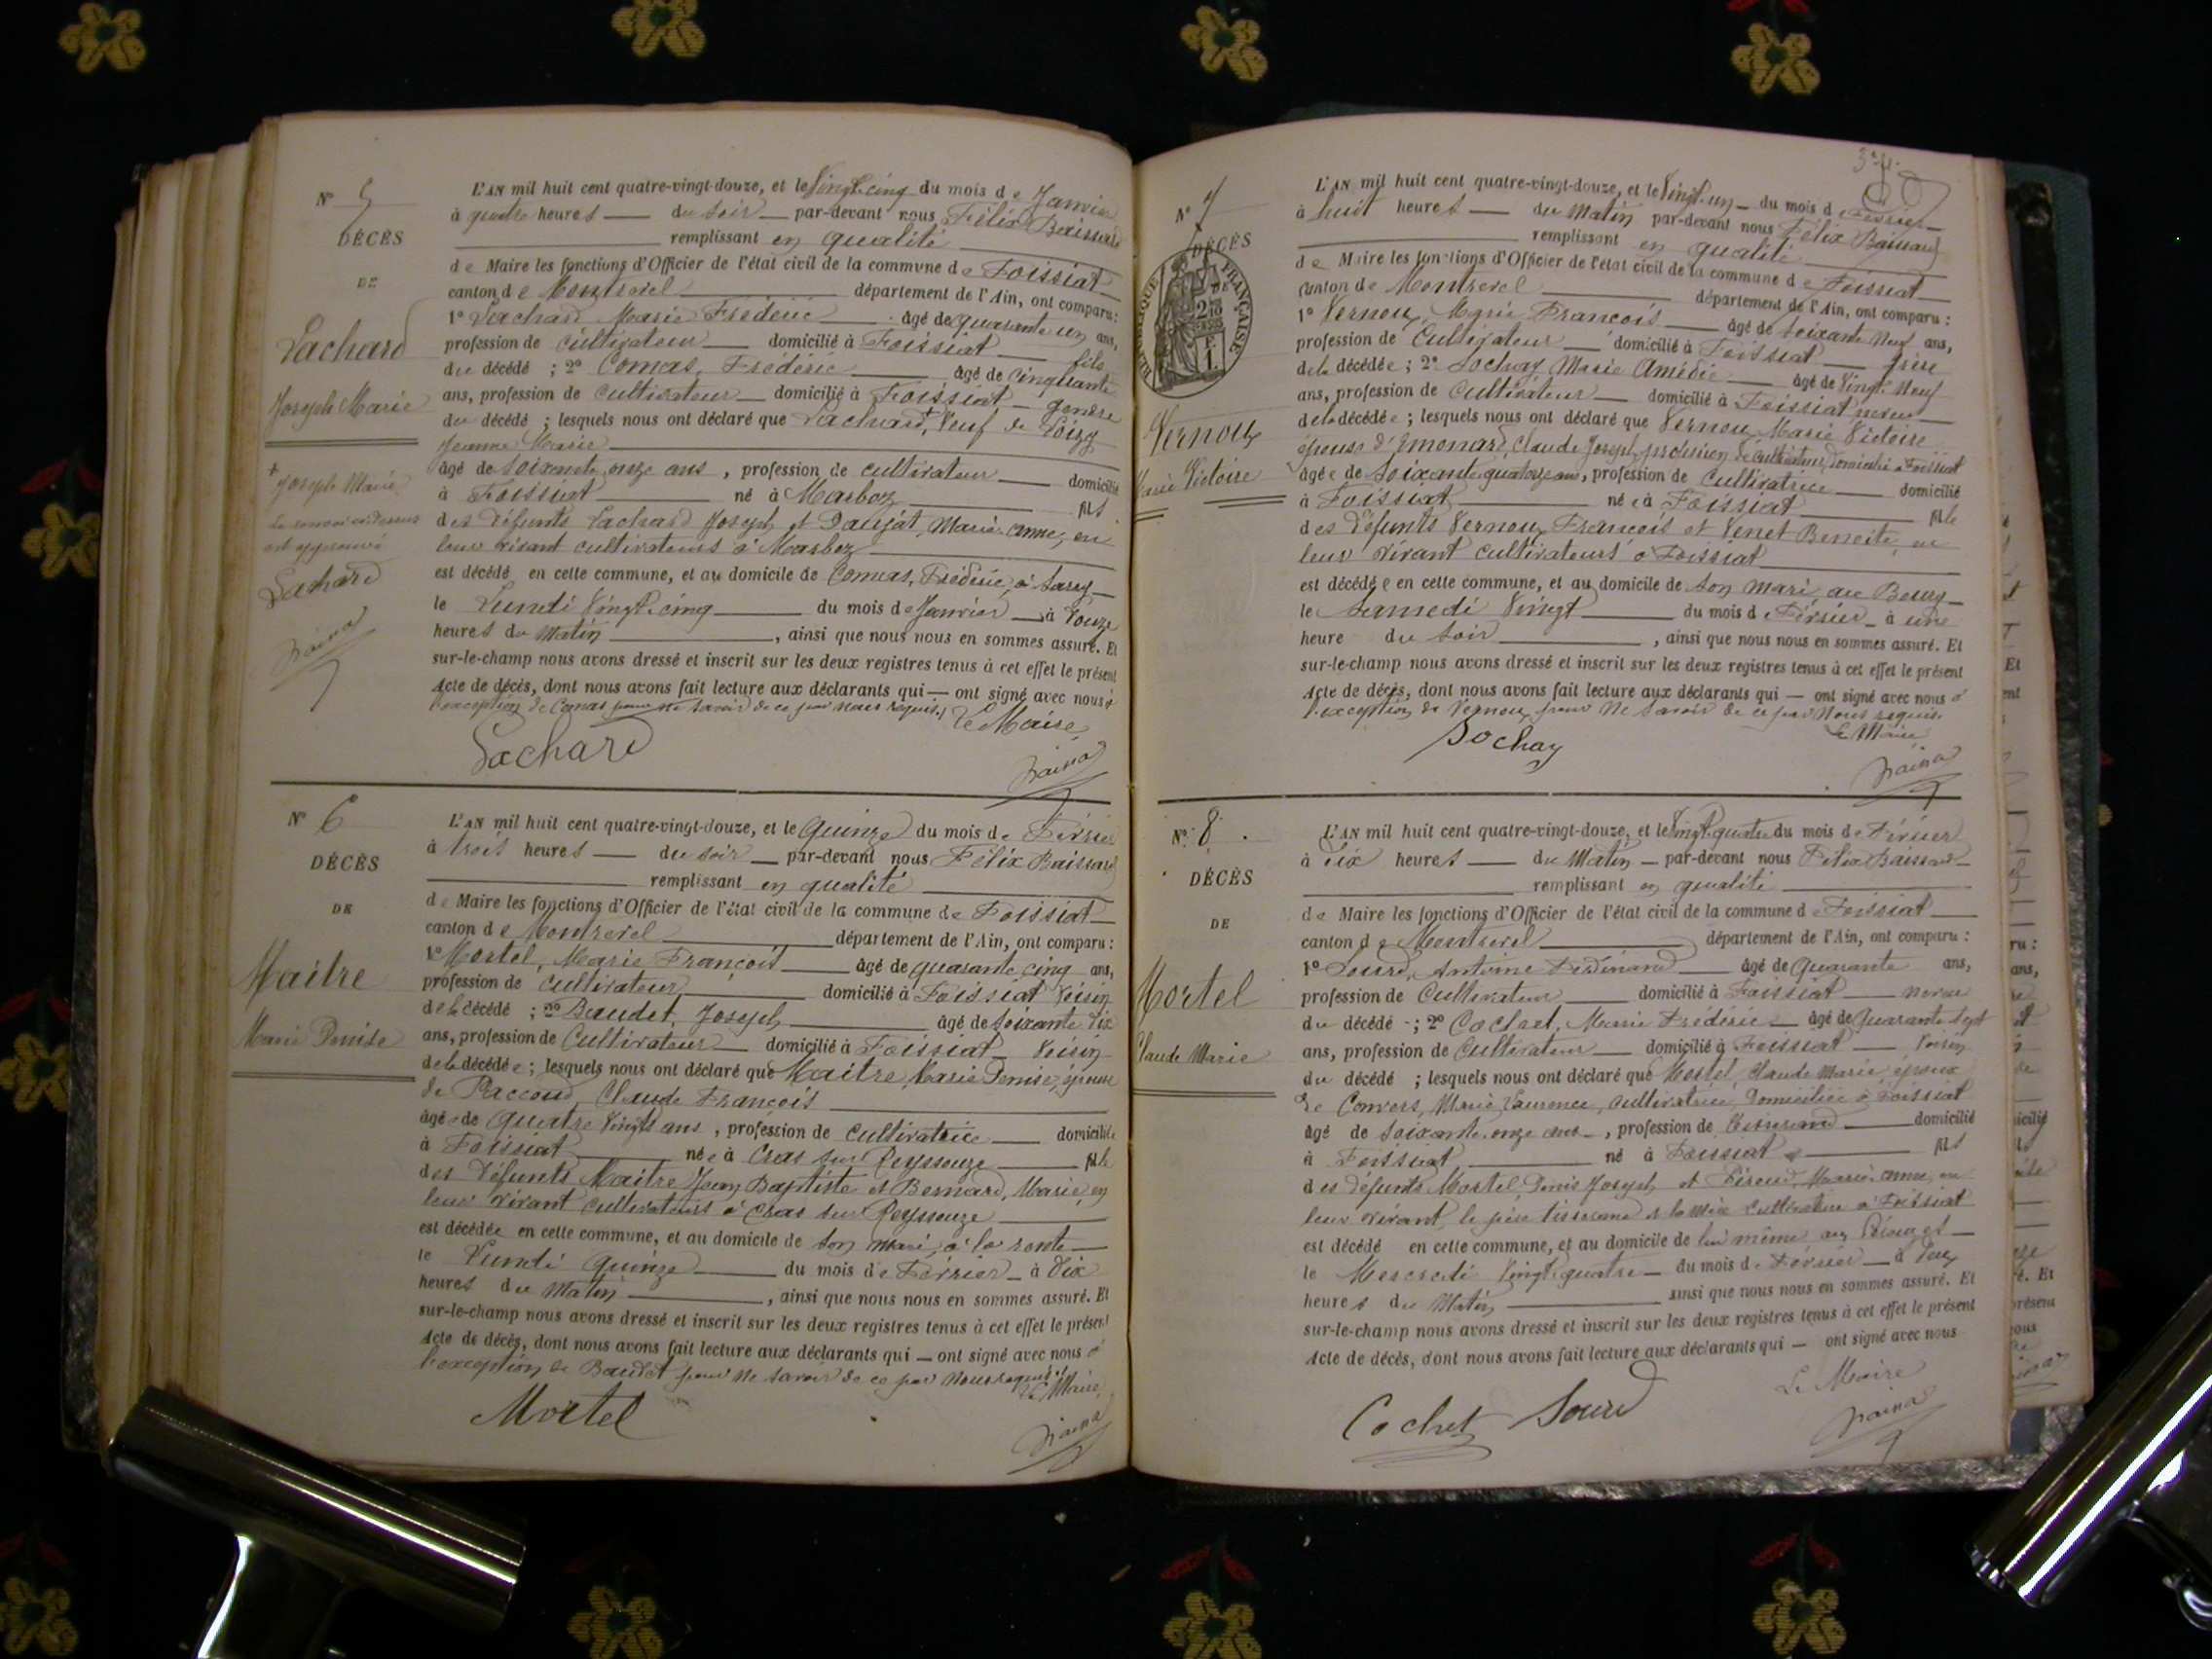 N° 5
DÉCÈS
DE
Lachard
Joseph Marie
+ Joseph Marie
Le renvoi ci-dessus
est approuvé
Lachard
L'AN mil huit cent quatre-vingt-douze, et le Vingt cinq du mois de Janvier
à quatre heures du soir par-devant nous Félix Baissard
remplissant en qualité
de Maire les fonctions d'Officier de l'état civil de la commune de Foissiat
canton de Montrevel département de l'Ain, ont comparu :
1° Lachard Marie Frédéric âgé de quarante un ans,
profession de cultivateur domicilié à Foissiat fils
du décédé ; 2° Comas, Frédéric âgé de cinquante
ans, profession de cultivateur domicilié à Foissiat gendre
du décédé ; lesquels nous ont déclaré que Lachard,+ Veuf de Loizy
Jeanne Marie
âgé de soixante onze ans , profession de cultivateur domicilié
à Foissiat né à Marboz fils
des défunts Lachard Joseph et Daujat, Marie-anne, en
leur vivant cultivateurs à Marboz
est décédé en cette commune, et au domicile de Comas, Frédéric, à
le Lundi Vingt cinq du mois de Janvier à Douze
heures du Matin , ainsi que nous nous en sommes assuré. Et
sur-le-champ nous avons dressé et inscrit sur les deux registres tenus à cet effet le présent
Acte de décès, dont nous avons fait lecture aux déclarants qui — ont signé avec nous à
l'exception de Comas pour ne savoir de ce par nous requis.
Le Maire
Lachard
N° 6
DÉCÈS
DE
Maitre
Marie Denise
L'AN mil huit cent quatre-vingt-douze, et le Quinze du mois de Février
à trois heures du soir par-devant nous Félix Baissard
remplissant en qualité
de Maire les fonctions d'Officier de l'état civil de la commune de Foissiat
canton de Montrevel département de l'Ain, ont comparu :
1° Mortel, Marie François âgé de quarante cinq ans,
profession de cultivateur domicilié à Foissiat Voisin
de la décédé ; 2° Baudet, Joseph âgé de soixante dix
ans, profession de Cultivateur domicilié à Foissiat Voisin
de la décédée ; lesquels nous ont déclaré que Maitre, Marie Denise, épouse
de Raccoud, Claude François
âgée de Quatre Vingts ans , profession de cultivatrice domiciliée
à Foissiat née à Cras sur Reyssouze fille
des défunts Maitre Jean Baptiste et Bernard, Marie, en
leur vivant cultivateurs à Cras sur Reyssouze
est décédée en cette commune, et au domicile de son mari, à la
le Lundi Quinze du mois de Février à Dix
heures du Matin , ainsi que nous nous en sommes assuré. Et
sur-le-champ nous avons dressé et inscrit sur les deux registres tenus à cet effet le présent
Acte de décès, dont nous avons fait lecture aux déclarants qui — ont signé avec nous à
l'exception de Baudet pour ne savoir de ce par nous requis.
Le Maire
Mortel
N° 7
DÉCÈS
DE
RÉPUBLIQUE FRANÇAISE
Vernoux
Marie Victoire
L'AN mil huit cent quatre-vingt-douze, et le Vingt-un du mois de Février
à huit heures du Matin par-devant nous Félix Baissard
remplissant en qualité
de Maire les fonctions d'Officier de l'état civil de la commune de Foissiat
canton de Montrevel département de l'Ain, ont comparu :
1° Vernoux, Marie François âgé de Soixante Neuf ans,
profession de Cultivateur domicilié à Foissiat frère
de la décédée ; 2° Sochay Marie Amédée âgé de Vingt Neuf
ans, profession de Cultivateur domicilié à Foissiat neveu
de la décédée ; lesquels nous ont déclaré que Vernoux Marie Victoire
épouse d'Emonard, Claude Joseph, profession de Cultivateur, domicilié à Foissiat
âgée de Soixante quatorze ans, profession de Cultivatrice domicilié
à Foissiat née à Foissiat fille
des défunts Vernoux, François et Venet Benoite, en
leur vivant cultivateurs à Foissiat
est décédée en cette commune, et au domicile de son mari au Bourg
le Samedi Vingt du mois de Février à une
heure du soir , ainsi que nous nous en sommes assuré. Et
sur-le-champ nous avons dressé et inscrit sur les deux registres tenus à cet effet le présent
Acte de décès, dont nous avons fait lecture aux déclarants qui — ont signé avec nous à
l'exception de Vernoux pour ne savoir de ce par Nous requis.
Le Maire
Sochay
N° 8
DÉCÈS
DE
Mortel
Claude Marie
L'AN mil huit cent quatre-vingt-douze, et le Vingt quatre du mois de Février
à Dix heures du Matin par-devant nous Félix Baissard
remplissant en qualité
de Maire les fonctions d'Officier de l'état civil de la commune de Foissiat
canton de Montrevel département de l'Ain, ont comparu :
1° Sourd, Antoine Ferdinand âgé de Quarante ans,
profession de Cultivateur domicilié à Foissiat neveu
du décédé ; 2° Cochet, Marie Frédéric âgé de Quarante Sept
ans, profession de Cultivateur domicilié à Foissiat Voisin
du décédé ; lesquels nous ont déclaré que Mortel, Claude Marie époux
de Convers, Marie Laurence, cultivatrice, Domiciliée à Foissiat
âgé de soixante onze ans , profession de Tisserand domicilié
à Foissiat né à Foissiat fils
des défunts Mortel Denis Joseph et Marie-anne, en
leur vivant, le père tisserand et la mère cultivatrice à Foissiat
est décédé en cette commune, et au domicile de lui même aux
le Mercredi Vingt quatre du mois de Février à Deux
heures du Matin ainsi que nous nous en sommes assuré. Et
sur-le-champ nous avons dressé et inscrit sur les deux registres tenus à cet effet le présent
Acte de décès, dont nous avons fait lecture aux déclarants qui — ont signé avec nous
Le Maire
Cochet Sourd